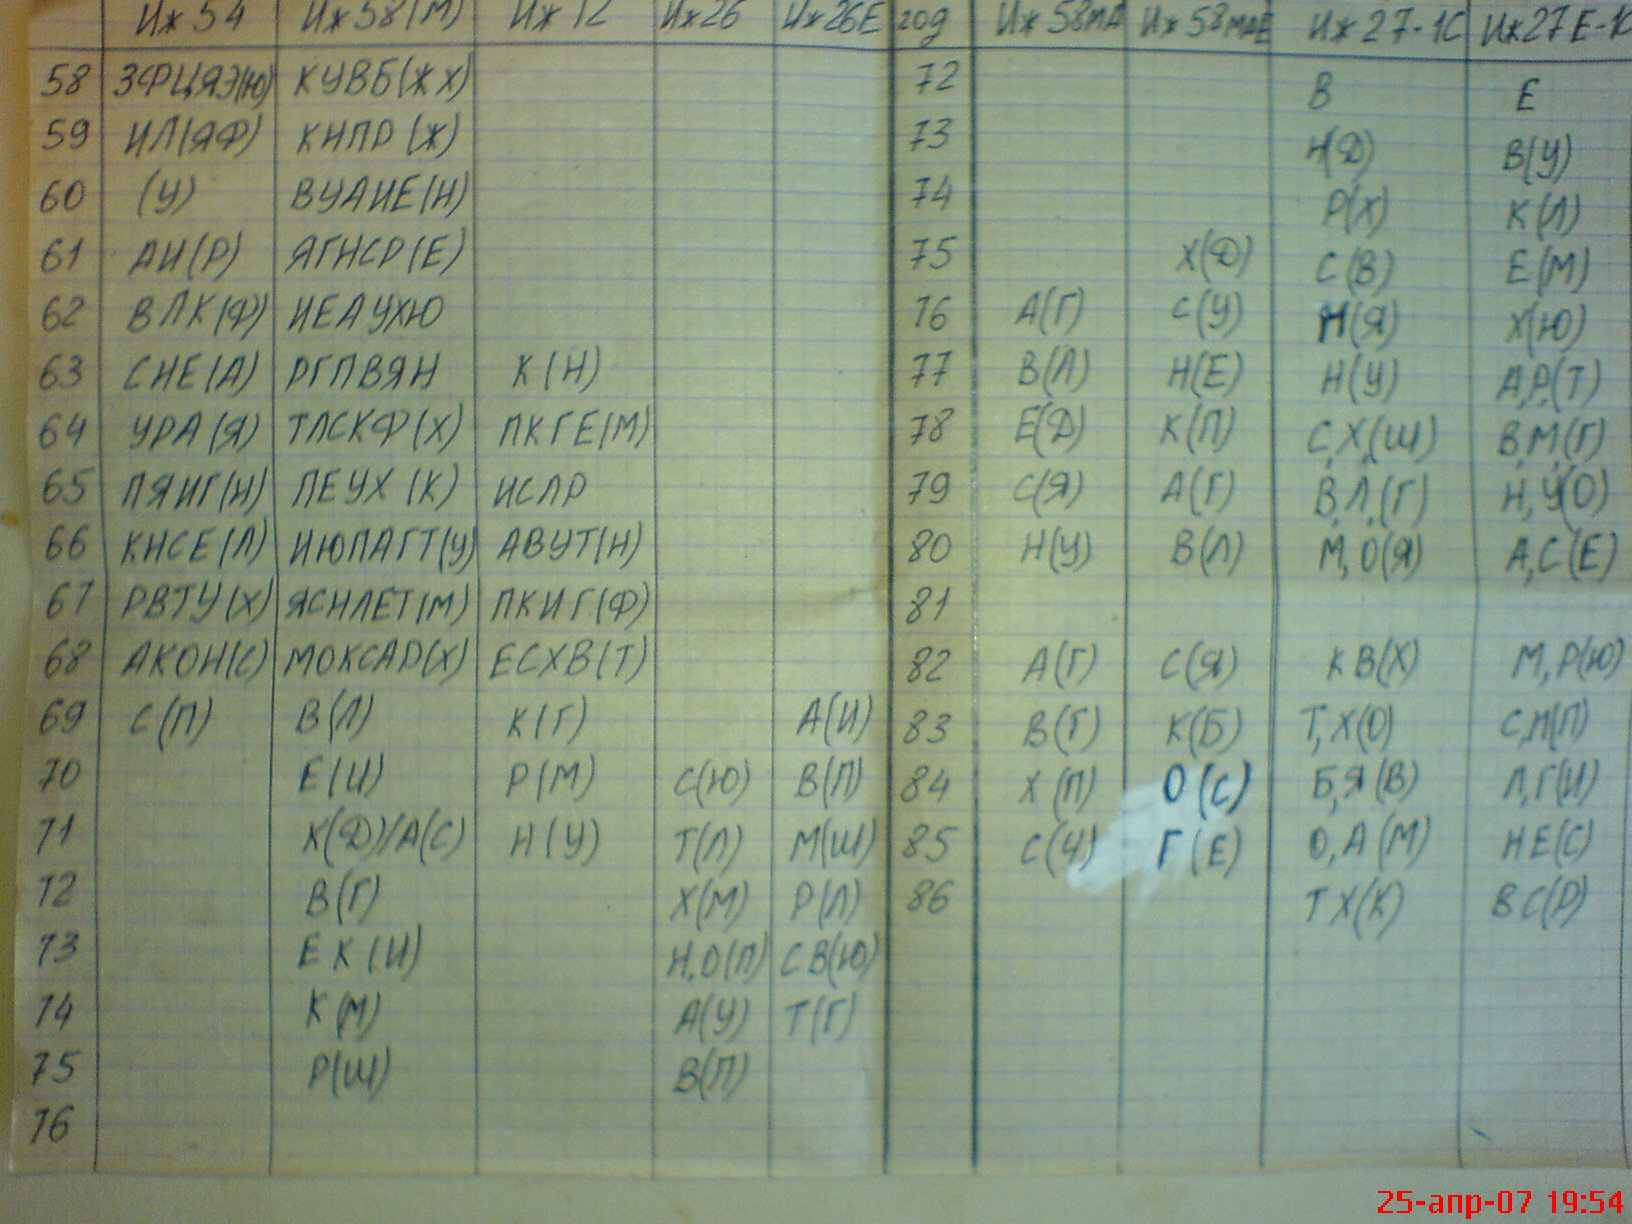 Иж 54 Иж 58 (М) Иж 12 Иж 26 Иж 26Е год Иж 58МА Иж 58МАЕ Иж 27-1С Иж 27Е-1С
58 ЗФЦЯЭ(Ю) КУВБ(ЖХ) 72 В Е
59 ИЛ(ЯФ) КНПР(Ж) 73 Н(Д) В(У)
60 (У) ВУАИЕ(Н) 74 Р(Х) К(Л)
61 АИ(Р) ЯГНСР(Е) 75 Х(Д) С(В) Е(М)
62 ВЛК(Ф) ИЕАУХЮ 76 А(Г) С(У) Н(Я) Х(Ю)
63 СНЕ(А) РГПВЯН К(Н) 77 В(Л) Н(Е) Н(У) А,Р,(Т)
64 УРА(Я) ТЛСКФ(Х) ПКГЕ(М) 78 Е(Д) К(П) С,Х,(Ш) В,М,(Г)
65 ПЯИГ(Н) ПЕУХ(К) ИСЛР 79 С(Я) А(Г) В,Л,(Г) Н,У(О)
66 КНСЕ(Л) ИЮПАГТ(У) АВУТ(Н) 80 Н(У) В(Л) М,О(Я) А,С(Е)
67 РВТУ(Х) ЯСНЛЕТ(М) ПКИГ(Ф) 81
68 АКОН(С) МОКСАР(Х) ЕСХВ(Т) 82 А(Г) С(Я) КВ(Х) М,Р(Ю)
69 С(П) В(Л) К(Г) А(И) 83 В(Г) К(Б) Т,Х(О) С,Н(П)
70 Е(И) Р(М) С(Ю) В(П) 84 Х(П) О(С) Б,Я(В) Л,Г(И)
71 К(Д)/А(С) Н(У) Т(Л) М(Ш) 85 С(Ч) Г(Е) О,А(М) НЕ(С)
72 В(Г) Х(М) Р(Л) 86 ТХ(К) ВС(Р)
73 ЕК(И) Н,О(П) СВ(Ю)
74 К(М) А(У) Т(Г)
75 Р(Ш) В(П)
76
25-апр-07 19:54